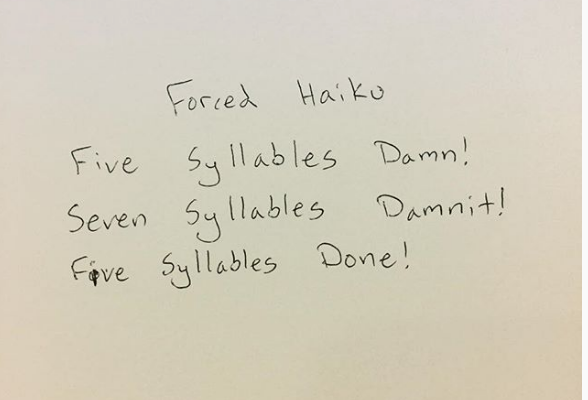 Forced Haiku
Five Syllables Damn!
Seven Syllables Damnit!
Five Syllables Done!